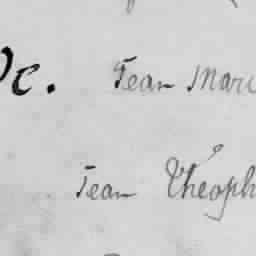 Jean Mari
Jean Théoph